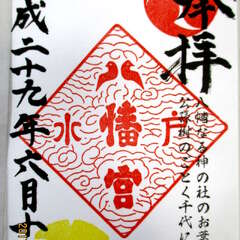 奉拝
八幡なる神の社のお葉
公孫樹のごとく千代に
八幡宮
水戸
成二十九年六月十